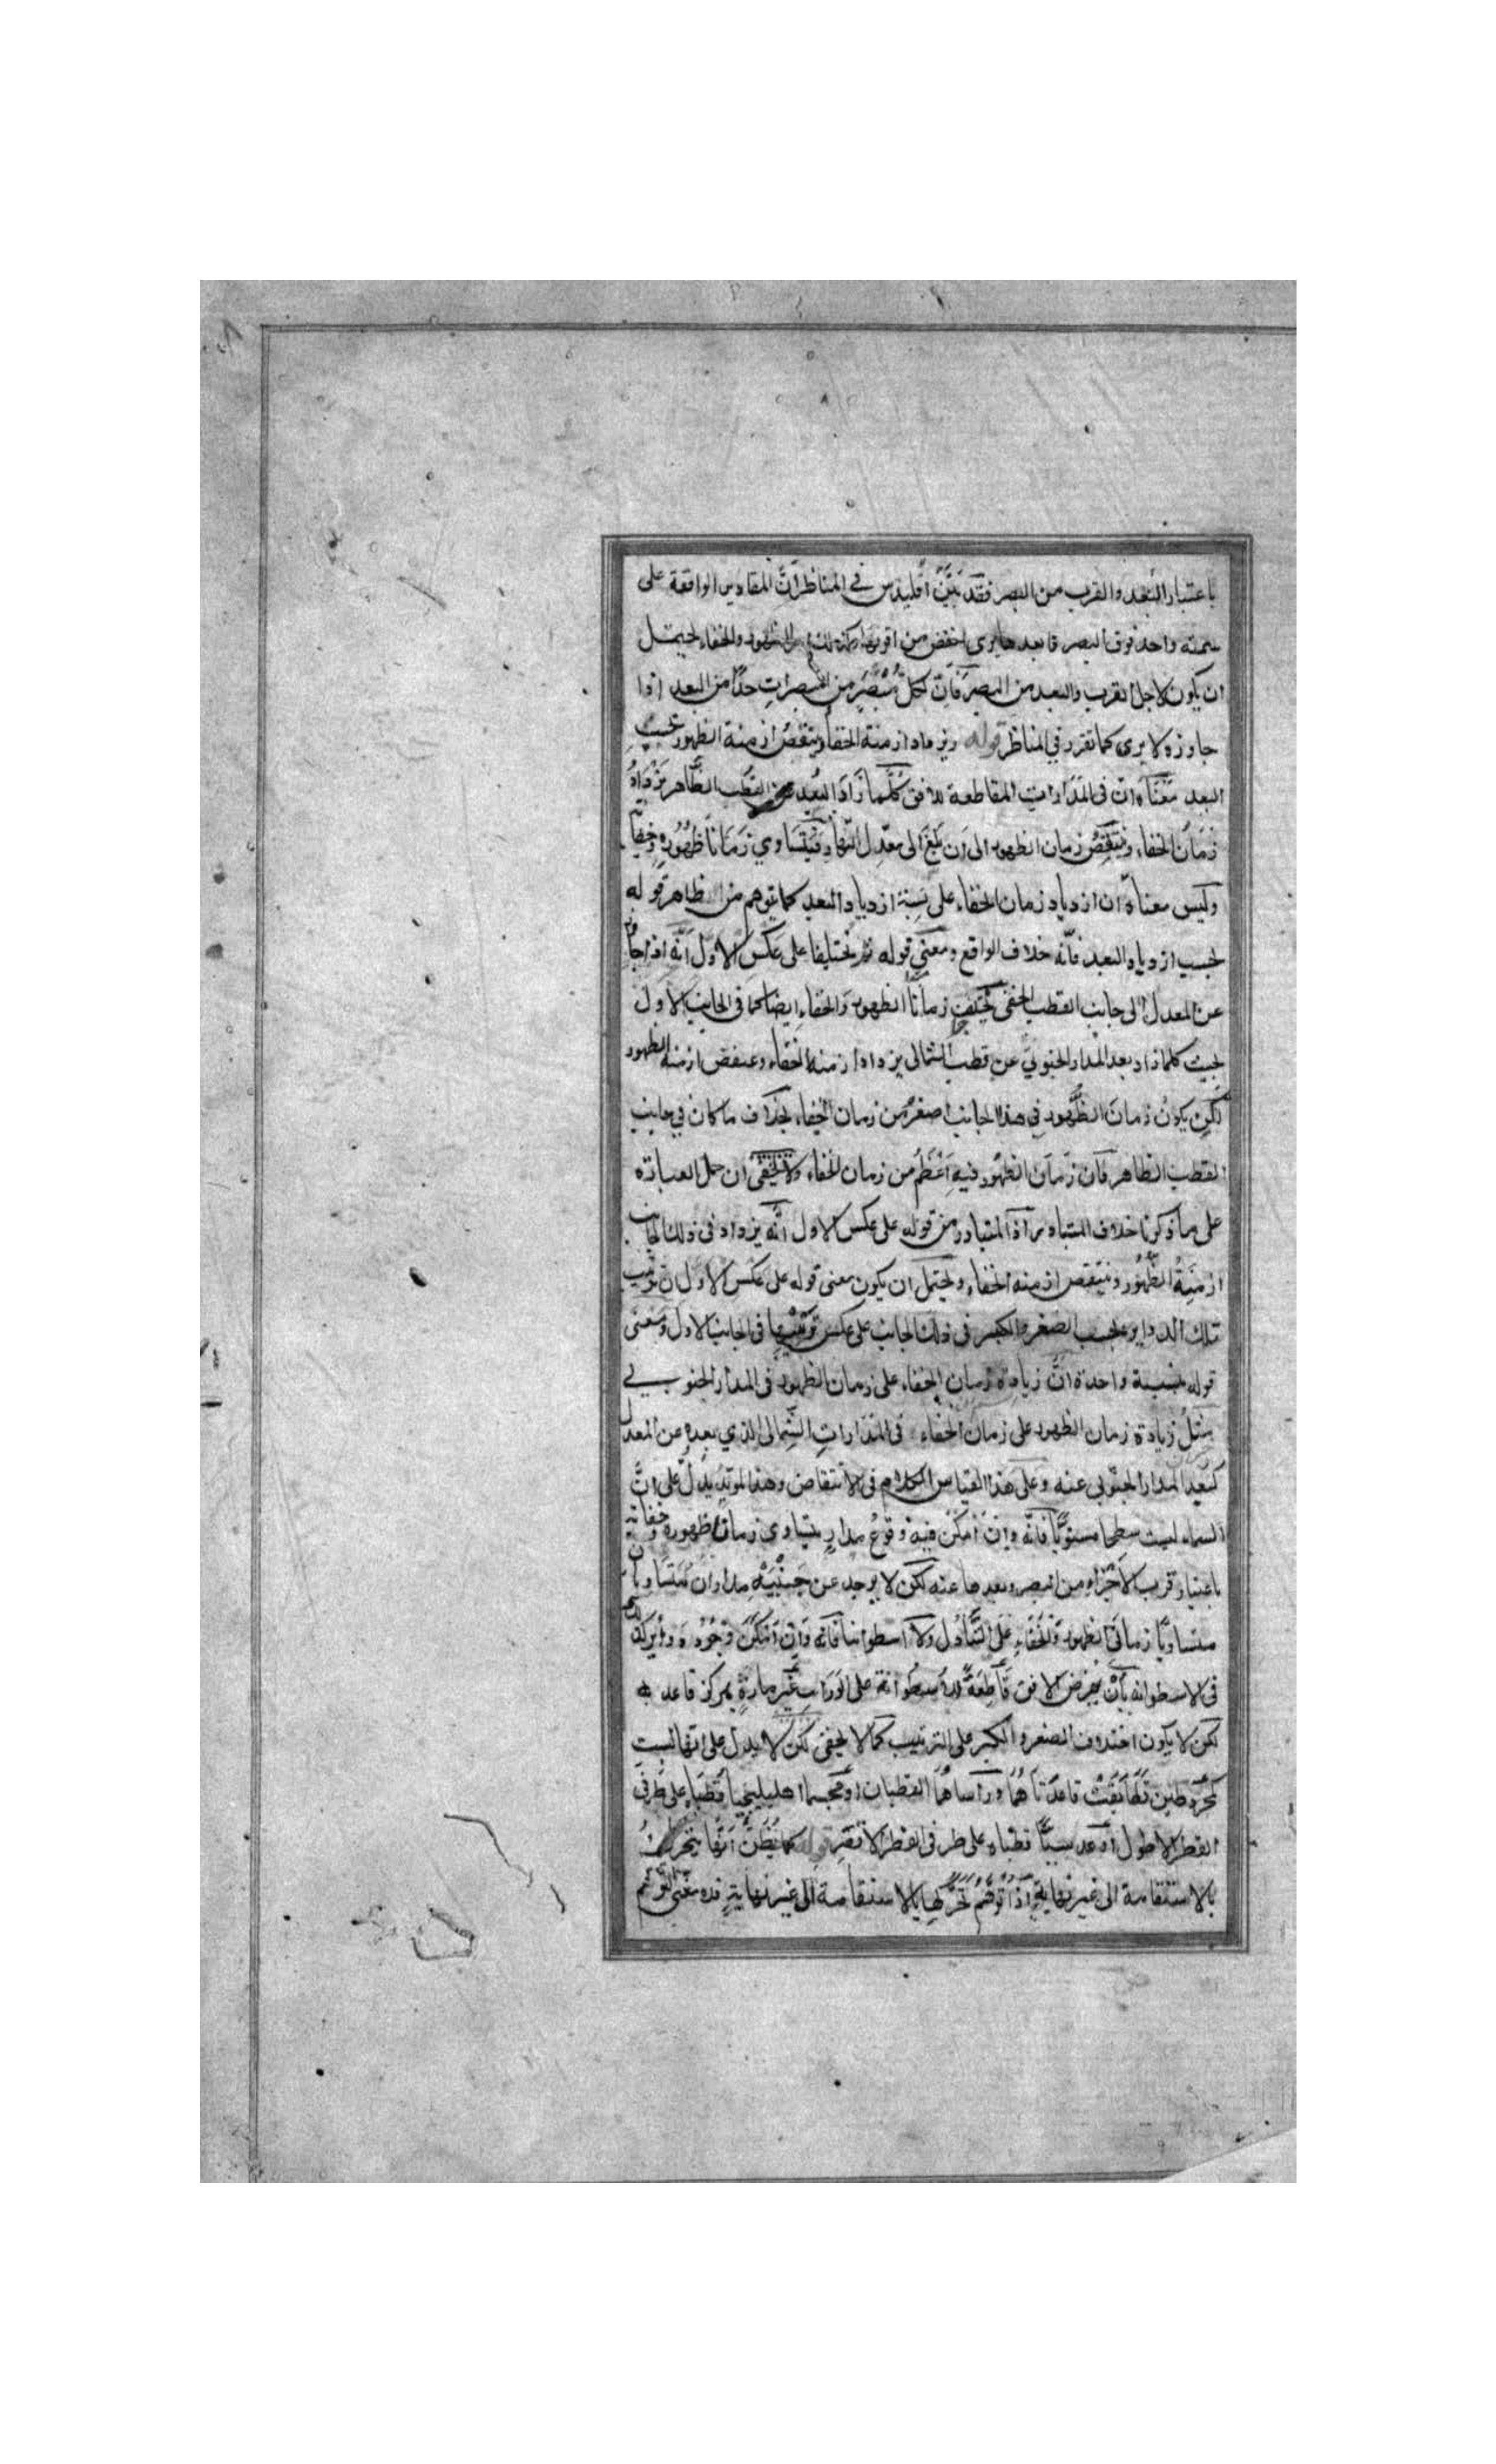 باعتبار البعد والقرب من البصر فقد بَيَّنَ أقليدس في المناظر أنّ المقادير الواقعة على
سمته واحد فوق البصر فابعدها يرى اخفض من اقربها وكذلك الظهور والخفاء يحتمل
ان يكون لاجل القرب والبعد من البصر فانّ لكلّ مُبْصَرٍ من المبصرات حدًّا من البعد اذا
جاوزه لا يرى كما تقرر في المناظر قوله ويزداد ازمنة الخفاء وينتقص ازمنة الظهور بحسب
البعد معناه ان في المدارات المقاطعة للافق كلّما زاد البعد عن القطب الظّاهر يزداد
زمان الخفاء وينتقص زمان الظهور الى ان يبلغ الى معدّل النّهار فيتساوي زمانا ظهوره وخفائه
وليس معناه ان ازدياد زمان الخفاء على نسبة ازدياد البعد كما يتوهم من الظاهر قوله
بحسب ازدياد البعد فانّه خلاف الواقع ومعنى قوله ثم يختلفا على عكس الاول أنّه اذا جاوز
عن المعدل الى جانب القطب الخفي يختلف زمانا الظهور والخفاء ايضا كما في الجانب الاول
بحيث كلما زاد بعد المدار الجنوبي عن قطب الشمالى يزداد ازمنة الخفاء وينقص ازمنة الظهور
لكن يكون زمان الظّهور في هذا الجانب اصغر من زمان الخفاء بخلاف ما كان في جانب
القطب الظاهر فان زمان الظهور فيه أعظم من زمان الخفاء ولا يخفى ان حمل العبارة
على ما ذكرنا خلاف المتبادر اذ المتبادر من قوله على عكس الاول أنّه يزداد في ذلك الجانب
ازمنة الظّهور وينتقص ازمنة الخفاء ويحتمل ان يكون معنى قوله على عكس الاول ان ترتيب
تلك الدواير بحسب الصغر والكبر في ذلك الجانب على عكس ترتيبها في الجانب الاول ومعنى
قوله بنسبة واحدة انّ زيادة زمان الخفاء على زمان الظهور في المدار الجنوبي
مثل زيادة زمان الظهور على زمان الخفاء في المدارات الشمالى الذي بعده عن المعدل
كبعد المدار الجنوبي عنه وعلى هذا القياس الكلام في الانتقاص وهذا يدلّ على انّ
السماء ليست سطحا مستويًا فانّه وان أمكن فيه وقوع مدار يتساوى زمانا ظهوره وخفائه
باعتبار قرب الاجزاء من البصر وبعدها عنه لكن لا يوجد عن جنبيه مداران متساويان
متساويا زمانى الظهور والخفاء على التّبادل ولا اسطوانيا فانه وان أمكن وجوده
في الاسطوانة بأن يفرض الافق قاطعة للاسطوانة على غير مارة بمركز قاعدته
لكن لا يكون اختلاف الصغر والكبر على الترتيب كما لا يخفى لكن لا يدل على انها ليست
كمخروطين قاعدتاهما ورأساهما القطبان او مجسما اهليليجيا قطباه على طرفى
القطر الاطول او عدسيًّا قطباه على طرفى القطر الاقصر قوله كما يُظَنّ أنّها يتحرك
بالاستقامة الى غير نهاية اذا توهّم تحركها بالاستقامة الى غير نهاية